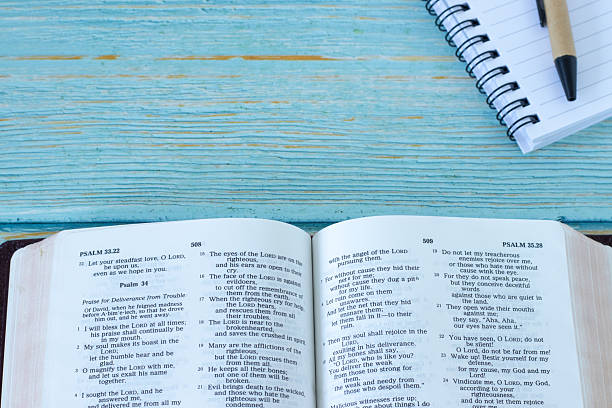 PSALM 33.22
508
22 Let your steadfast love, O LORD,
be upon us,
even as we hope in you.
Psalm 34
Praise for Deliverance from Trouble
Of David, when he feigned madness
before A-bim'e-lech, so that he drove
him out, and he went away.
1 I will bless the LORD at all times;
his praise shall continually be
in my mouth.
2 My soul makes its boast in the
LORD;
let the humble hear and be
glad.
3 O magnify the LORD with me,
and let us exalt his name
together.
4 I sought the LORD, and he
answered me,
and delivered me from all my
15 The eyes of the LORD are on the
righteous,
and his ears are open to their
cry.
16 The face of the LORD is against
evildoers,
to cut off the remembrance
of them from the earth.
17 When the righteous cry for help,
the LORD hears,
and rescues them from all
their troubles.
18 The LORD is near to the
brokenhearted,
and saves the crushed in spirit.
19 Many are the afflictions of the
righteous,
but the LORD rescues them
from them all.
20 He keeps all their bones;
not one of them will be
broken.
21 Evil brings death to the wicked,
and those who hate the
righteous will be
condemned.
509
PSALM 35.28
with the angel of the LORD
pursuing them.
7 For without cause they hid their
net for me;
without cause they dug a pit
for my life.
8 Let ruin come on them
unawares.
And let the net that they hid
ensnare them;
let them fall in it—to their
ruin.
9 Then my soul shall rejoice in the
LORD,
exulting in his deliverance.
10 All my bones shall say,
"O LORD, who is like you?
You deliver the weak
from those too strong for
them,
the weak and needy from
those who despoil them."
11 Malicious witnesses rise up;
me about things I do
19 Do not let my treacherous
enemies rejoice over me,
or those who hate me without
cause wink the eye.
20 For they do not speak peace,
but they conceive deceitful
words
against those who are quiet in
the land.
21 They open wide their mouths
against me;
they say, "Aha, Aha,
our eyes have seen it."
22 You have seen, O LORD; do not
be silent!
O Lord, do not be far from me!
23 Wake up! Bestir yourself for my
defense,
for my cause, my God and my
Lord!
24 Vindicate me, O LORD, my God,
according to your
righteousness,
and do not let them rejoice
over me.